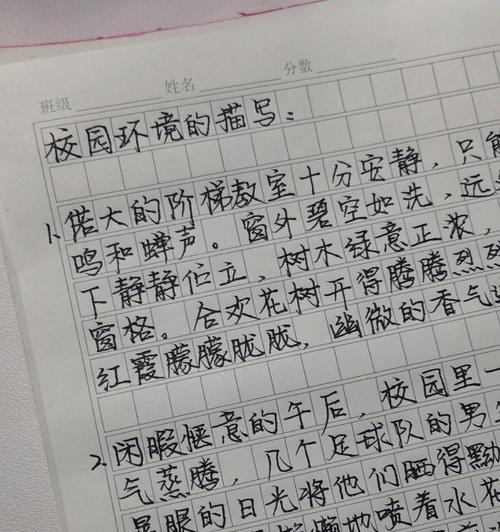 班级 姓名 分数
校园环境的描写：
1、偌大的阶梯教室十分安静，只能
鸣和蝉声。窗外碧空如洗，远
下静静伫立，树木绿意正浓，
窗格。合欢花树开得腾腾烈烈
红霞朦朦胧胧，幽微的香气
2、闲暇惬意的午后，校园里一
气蒸腾，几个足球队的男
眼的日光将他们晒得黝
地喷着水花